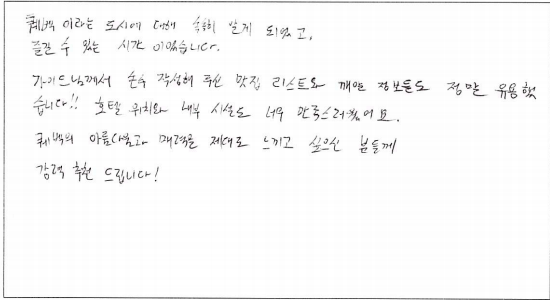 퀘백 이라는 도시에 대해 속속히 알게 되었고,
즐길 수 있는 시간 이었습니다.
가이드님께서 손수 작성해 주신 맛집 리스트와 깨알 정보들도 정말 유용했
습니다!! 호텔 위치와 내부 시설도 너무 만족스러웠어요.
퀘백의 아름다움과 매력을 제대로 느끼고 싶으신 분들께
강력 추천 드립니다!